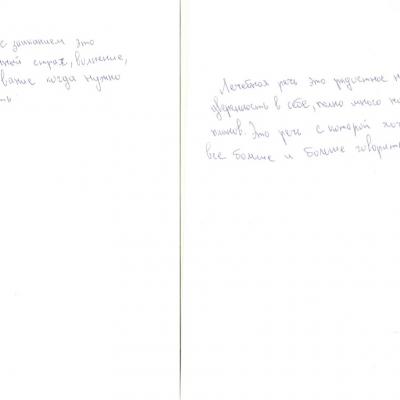 с заиканием это
страх, волнение,
вание когда нужно
ть
Лечебная речь это радостное н
уверенность в себе, полно много но
клонов. Это речь с которой хоч
все больше и больше говорить